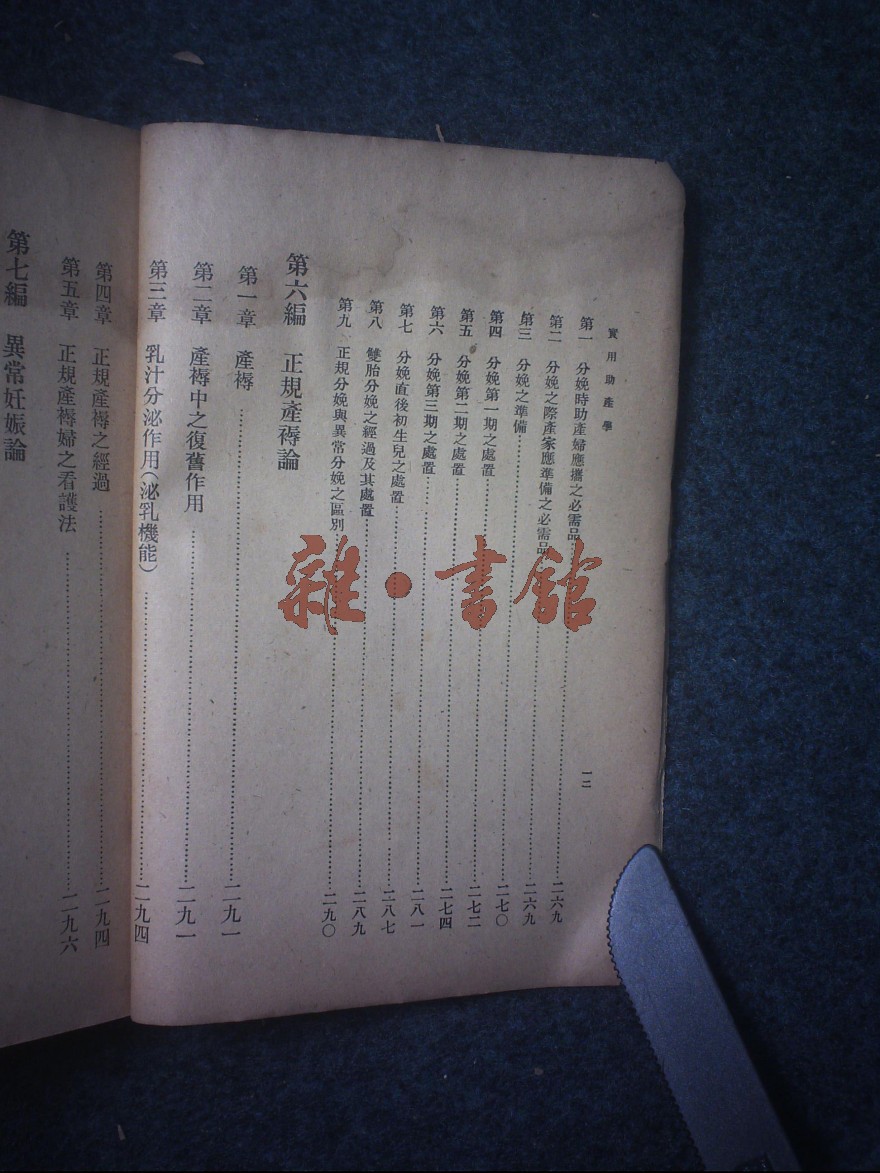 實用助產學
一二
第一 分娩時助產婦應攜之必需品……二六九
第二 分娩之際產家應準備之必需品……二六九
第三 分娩之準備……二七〇
第四 分娩第一期之處置……二七二
第五 分娩第二期之處置……二七四
第六 分娩第三期之處置……二八一
第七 分娩直後初生兒之處置……二八七
第八 雙胎分娩之經過及其處置……二八九
第九 正規分娩與異常分娩之區別……二九〇
第六編 正規產褥論
第一章 產褥……二九一
第二章 產褥中之復舊作用……二九一
第三章 乳汁分泌作用(泌乳機能)……二九四
第四章 正規產褥之經過……二九四
第五章 正規產褥婦之看護法……二九六
第七編 異常妊娠論
雜·書館